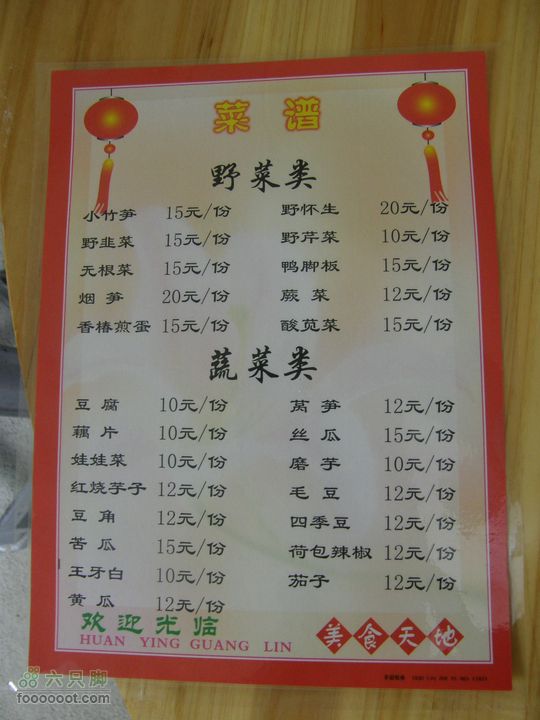 菜谱
野菜类
小竹笋 15元/份 野怀生 20元/份
野韭菜 15元/份 野芹菜 10元/份
无根菜 15元/份 鸭脚板 15元/份
烟笋 20元/份 蕨菜 12元/份
香椿煎蛋 15元/份 酸苋菜 15元/份
蔬菜类
豆腐 10元/份 莴笋 12元/份
藕片 10元/份 丝瓜 15元/份
娃娃菜 10元/份 磨芋 10元/份
红烧芋子 12元/份 毛豆 12元/份
豆角 12元/份 四季豆 12元/份
苦瓜 15元/份 荷包辣椒 12元/份
王牙白 10元/份 茄子 12元/份
黄瓜 12元/份
欢迎光临 美食天地
HUAN YING GUANG LIN
六只脚
foooooot.com